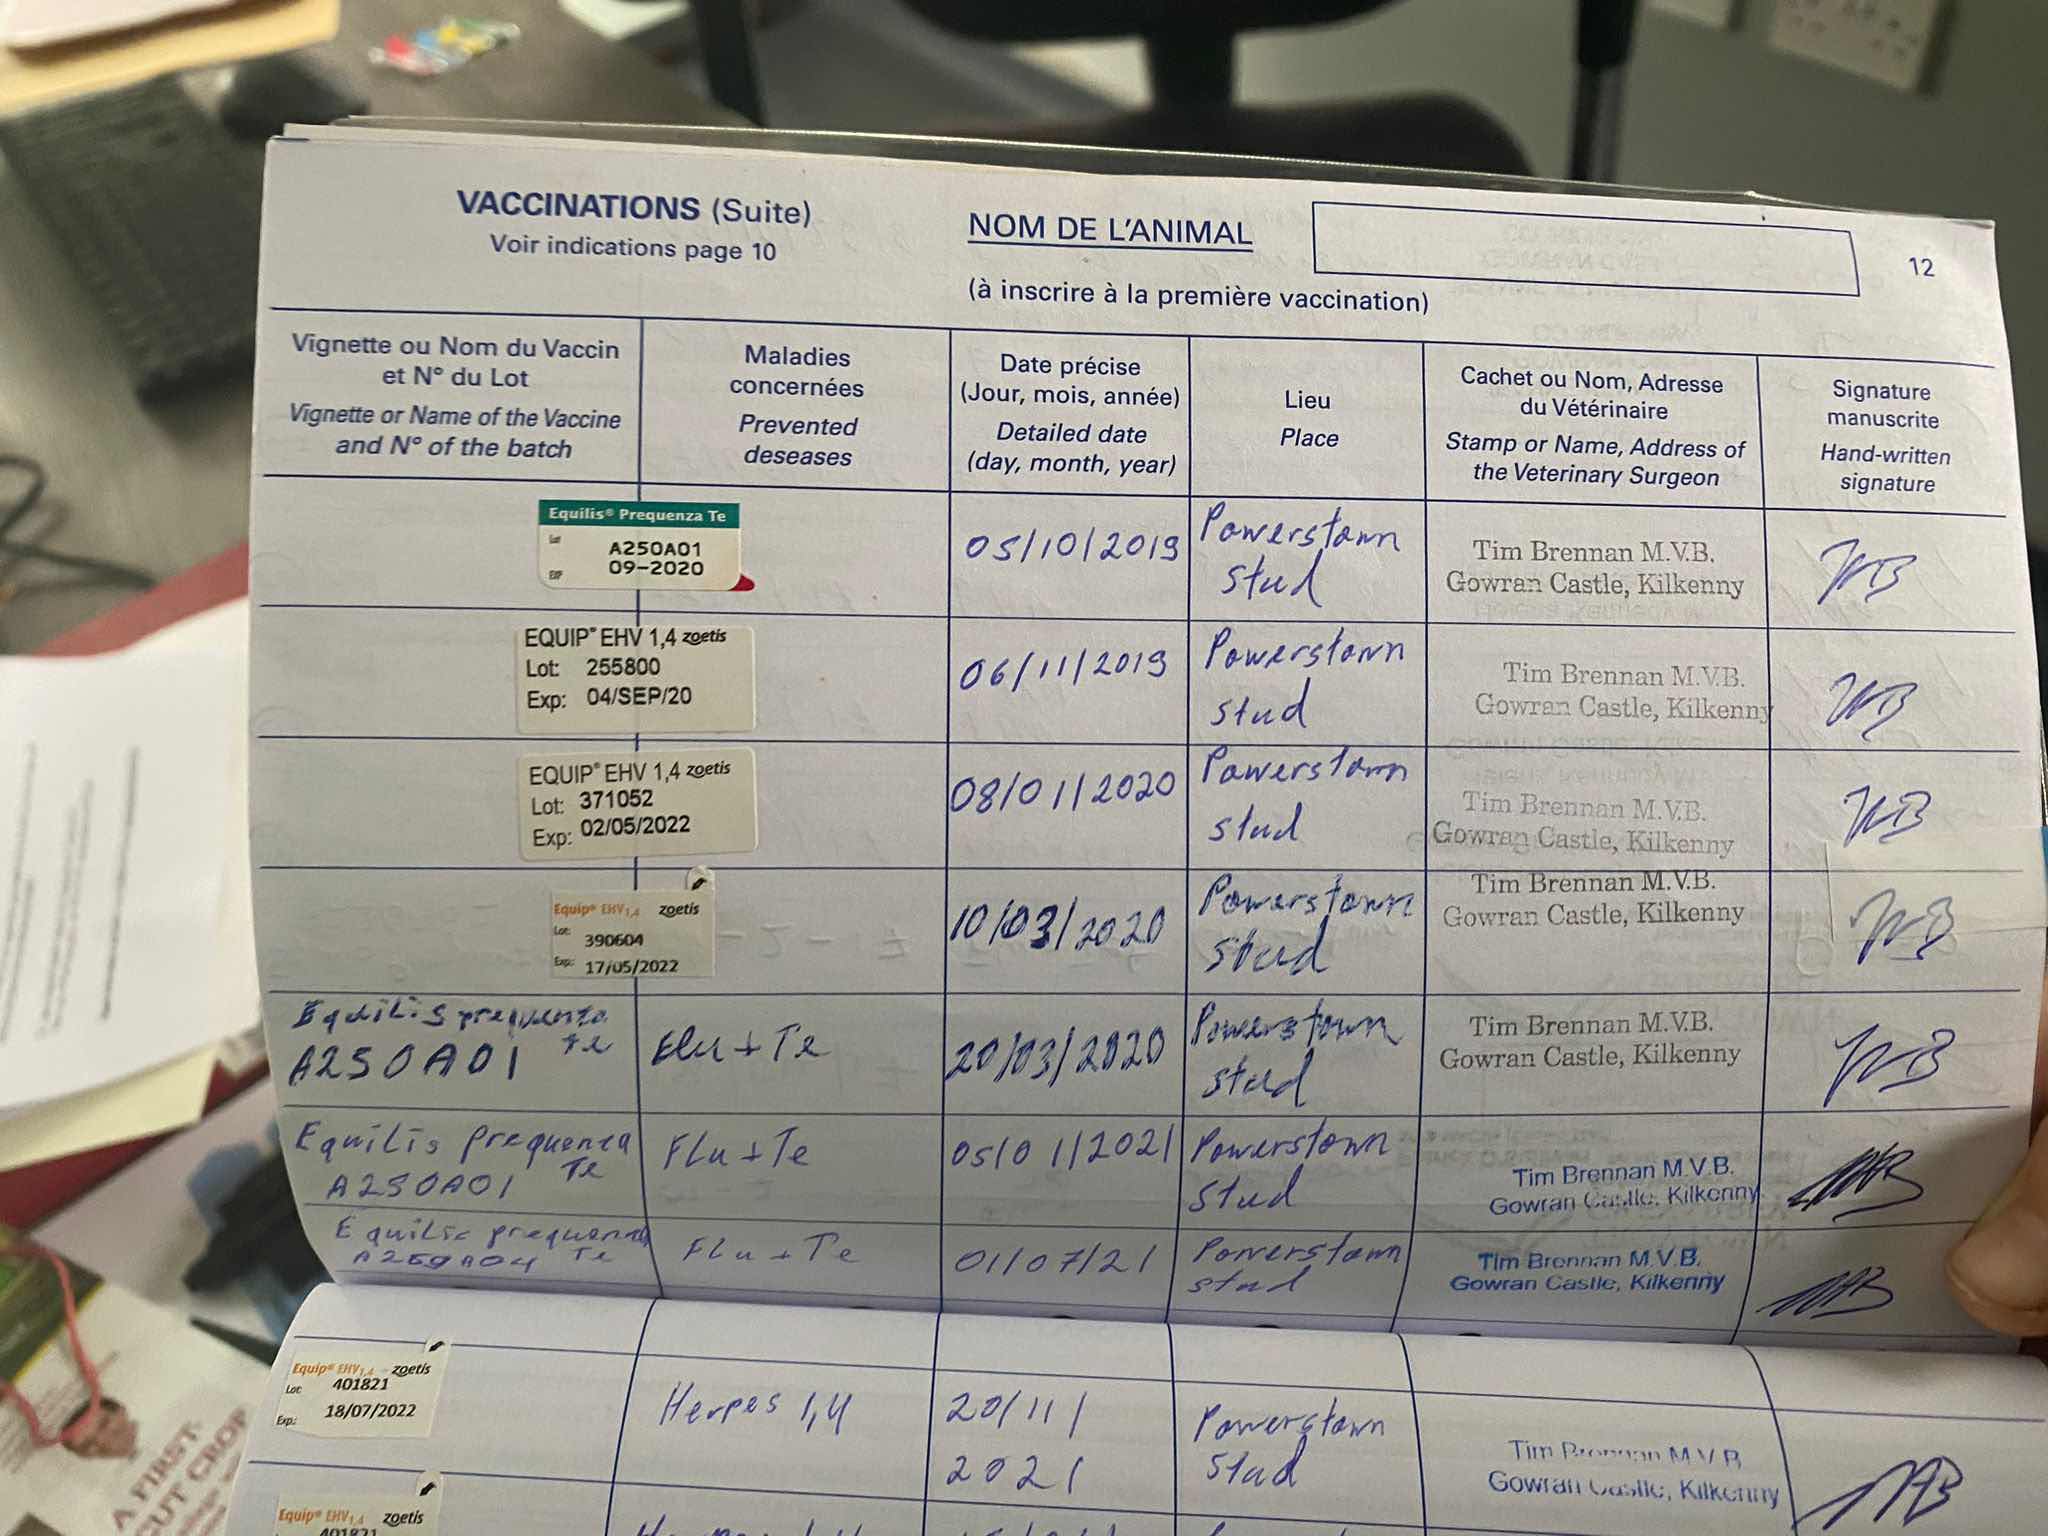 VACCINATIONS (Suite)
Voir indications page 10
NOM DE L'ANIMAL
(à inscrire à la première vaccination)
12
Vignette ou Nom du Vaccin
et N° du Lot
Vignette or Name of the Vaccine
and N° of the batch
Maladies
concernées
Prevented
deseases
Date précise
(Jour, mois, année)
Detailed date
(day, month, year)
Lieu
Place
Cachet ou Nom, Adresse
du Vétérinaire
Stamp or Name, Address of
the Veterinary Surgeon
Signature
manuscrite
Hand-written
signature
Equilis® Prequenza Te
Lot A250A01
EXP 09-2020
05/10/2019
Powerstown
stud
Tim Brennan M.V.B.
Gowran Castle, Kilkenny
EQUIP® EHV 1,4 zoetis
Lot: 255800
Exp: 04/SEP/20
06/11/2019
Powerstown
stud
Tim Brennan M.V.B.
Gowran Castle, Kilkenny
EQUIP® EHV 1,4 zoetis
Lot: 371052
Exp: 02/05/2022
08/01/2020
Powerstown
stud
Tim Brennan M.V.B.
Gowran Castle, Kilkenny
Equip® EHV1,4 zoetis
Lot: 390604
Exp: 17/05/2022
10/03/2020
Powerstown
stud
Tim Brennan M.V.B.
Gowran Castle, Kilkenny
Equilis prequenza
Te
A250A01
Flu + Te
20/03/2020
Powerstown
stud
Tim Brennan M.V.B.
Gowran Castle, Kilkenny
Equilis prequenza
Te
A250A01
Flu + Te
05/01/2021
Powerstown
stud
Tim Brennan M.V.B.
Gowran Castle, Kilkenny
Equilis prequenza
Te
Flu + Te
01/07/21
Powerstown
stud
Tim Brennan M.V.B.
Gowran Castle, Kilkenny
Equip® EHV1,4 zoetis
Lot: 401821
Exp: 18/07/2022
Herpes 1,4
20/11/
2021
Powerstown
stud
Tim Brennan M.V.B.
Gowran Castle, Kilkenny
Equip® EHV1,4 zoetis
401821
A FIRST-
CUT CROP